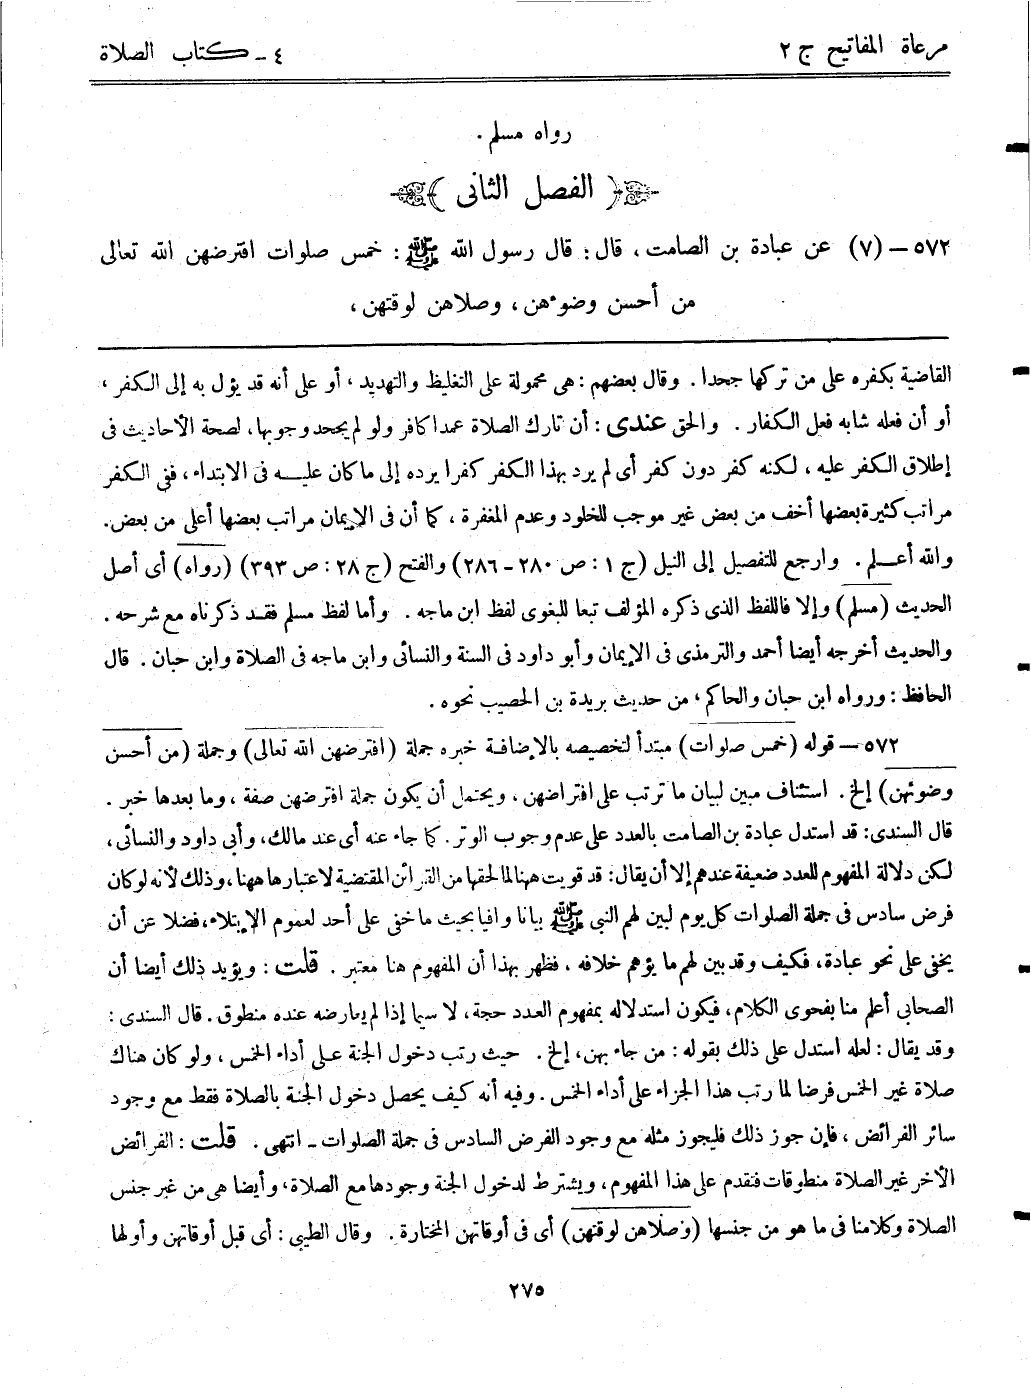 مرعاة المفاتيح ج ٢
٤ ـ كتاب الصلاة
رواه مسلم .
﴿ الفصل الثانى ﴾
٥٧٢ – (٧) عن عبادة بن الصامت ، قال : قال رسول الله ﷺ : خمس صلوات افترضهن الله تعالى
من أحسن وضوءهن ، وصلاهن لوقتهن ،
القاضية بكفره على من تركها جحدا . وقال بعضهم : هى محمولة على التغليظ والتهديد ، أو على أنه قد يؤل به إلى الكفر ،
أو أن فعله شابه فعل الكفار . والحق عندى : أن تارك الصلاة عمدا كافر ولو لم يجحد وجوبها ، لصحة الأحاديث فى
إطلاق الكفر عليه ، لكنه كفر دون كفر أى لم يرد بهذا الكفر كفرا يرده إلى ما كان عليه فى الابتداء ، ففى الكفر
مراتب كثيرة بعضها أخف من بعض غير موجب للخلود وعدم المغفرة ، كما أن فى الإيمان مراتب بعضها أعلى من بعض.
والله أعلم . وارجع للتفصيل إلى النيل (ج ١ : ص ٢٨٠ – ٢٨٦) والفتح (ج ٢٨ : ص ٣٩٣) (رواه) أى أصل
الحديث (مسلم) وإلا فاللفظ الذى ذكره المؤلف تبعا للبغوى لفظ ابن ماجه . وأما لفظ مسلم فقد ذكرناه مع شرحه .
والحديث أخرجه أيضا أحمد والترمذى فى الإيمان وأبو داود فى السنة والنسائى وابن ماجه فى الصلاة وابن حبان . قال
الحافظ : ورواه ابن حبان والحاكم ، من حديث بريدة بن الحصيب نحوه .
٥٧٢ – قوله (خمس صلوات) مبتدأ لتخصيصه بالإضافة خبره جملة (افترضهن الله تعالى) وجملة (من أحسن
وضوئهن) إلخ . استئناف مبين لبيان ما ترتب على افتراضهن ، ويحتمل أن يكون جملة افترضهن صفة ، وما بعدها خبر .
قال السندى : قد استدل عبادة بن الصامت بالعدد على عدم وجوب الوتر . كما جاء عنه أى عند مالك ، وأبى داود والنسائى ،
لكن دلالة المفهوم للعدد ضعيفة عندهم إلا أن يقال : قد قويت ههنا لما لحقها من القرائن المقتضية لاعتبارها ههنا ، وذلك لأنه لو كان
فرض سادس فى جملة الصلوات كل يوم لبين لهم النبى ﷺ بيانا وافيا بحيث ما خفى على أحد لعموم الإبتلاء ، فضلا عن أن
يخفى على نحو عبادة ، فكيف وقد بين لهم ما يؤهم خلافه ، فظهر بهذا أن المفهوم هنا معتبر . قلت : ويؤيد ذلك أيضا أن
الصحابى أعلم منا بفحوى الكلام ، فيكون استدلاله بمفهوم العدد حجة ، لا سيما إذا لم يعارضه عنده منطوق . قال السندى :
وقد يقال : لعله استدل على ذلك بقوله : من جاء بهن ، إلخ . حيث رتب دخول الجنة على أداء الخمس ، ولو كان هناك
صلاة غير الخمس فرضا لما رتب هذا الجزاء على أداء الخمس . وفيه أنه كيف يحصل دخول الجنة بالصلاة فقط مع وجود
سائر الفرائض ، فإن جوز ذلك فليجوز مثله مع وجود الفرض السادس فى جملة الصلوات ـ انتهى . قلت : الفرائض
الآخر غير الصلاة منطوقات فتقدم على هذا المفهوم ، ويشترط لدخول الجنة وجودها مع الصلاة ، وأيضا هى من غير جنس
الصلاة وكلامنا فى ما هو من جنسها (وصلاهن لوقتهن) أى فى أوقاتهن المختارة . وقال الطيبى : أى قبل أوقاتهن وأولها
٢٧٥